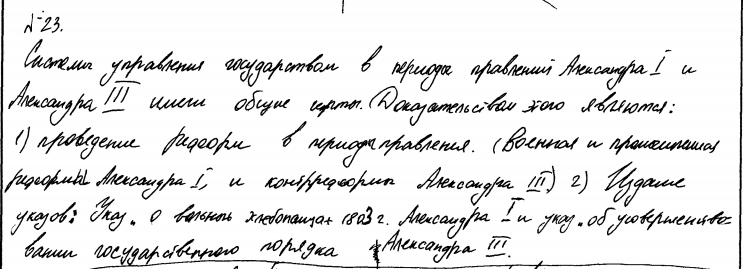 №23.
Система управления государством в периоды правлений Александра I и
Александра III имели общие черты. Доказательством этого являются:
1) проведение реформ в периоды правления. (Военная и промышленная
реформы Александра I, и контрреформы Александра III) 2) Издание
указов: Указ „о вольных хлебопашцах 1803 г. Александра I и указ „об усовершенство-
вании государственного порядка Александра III.